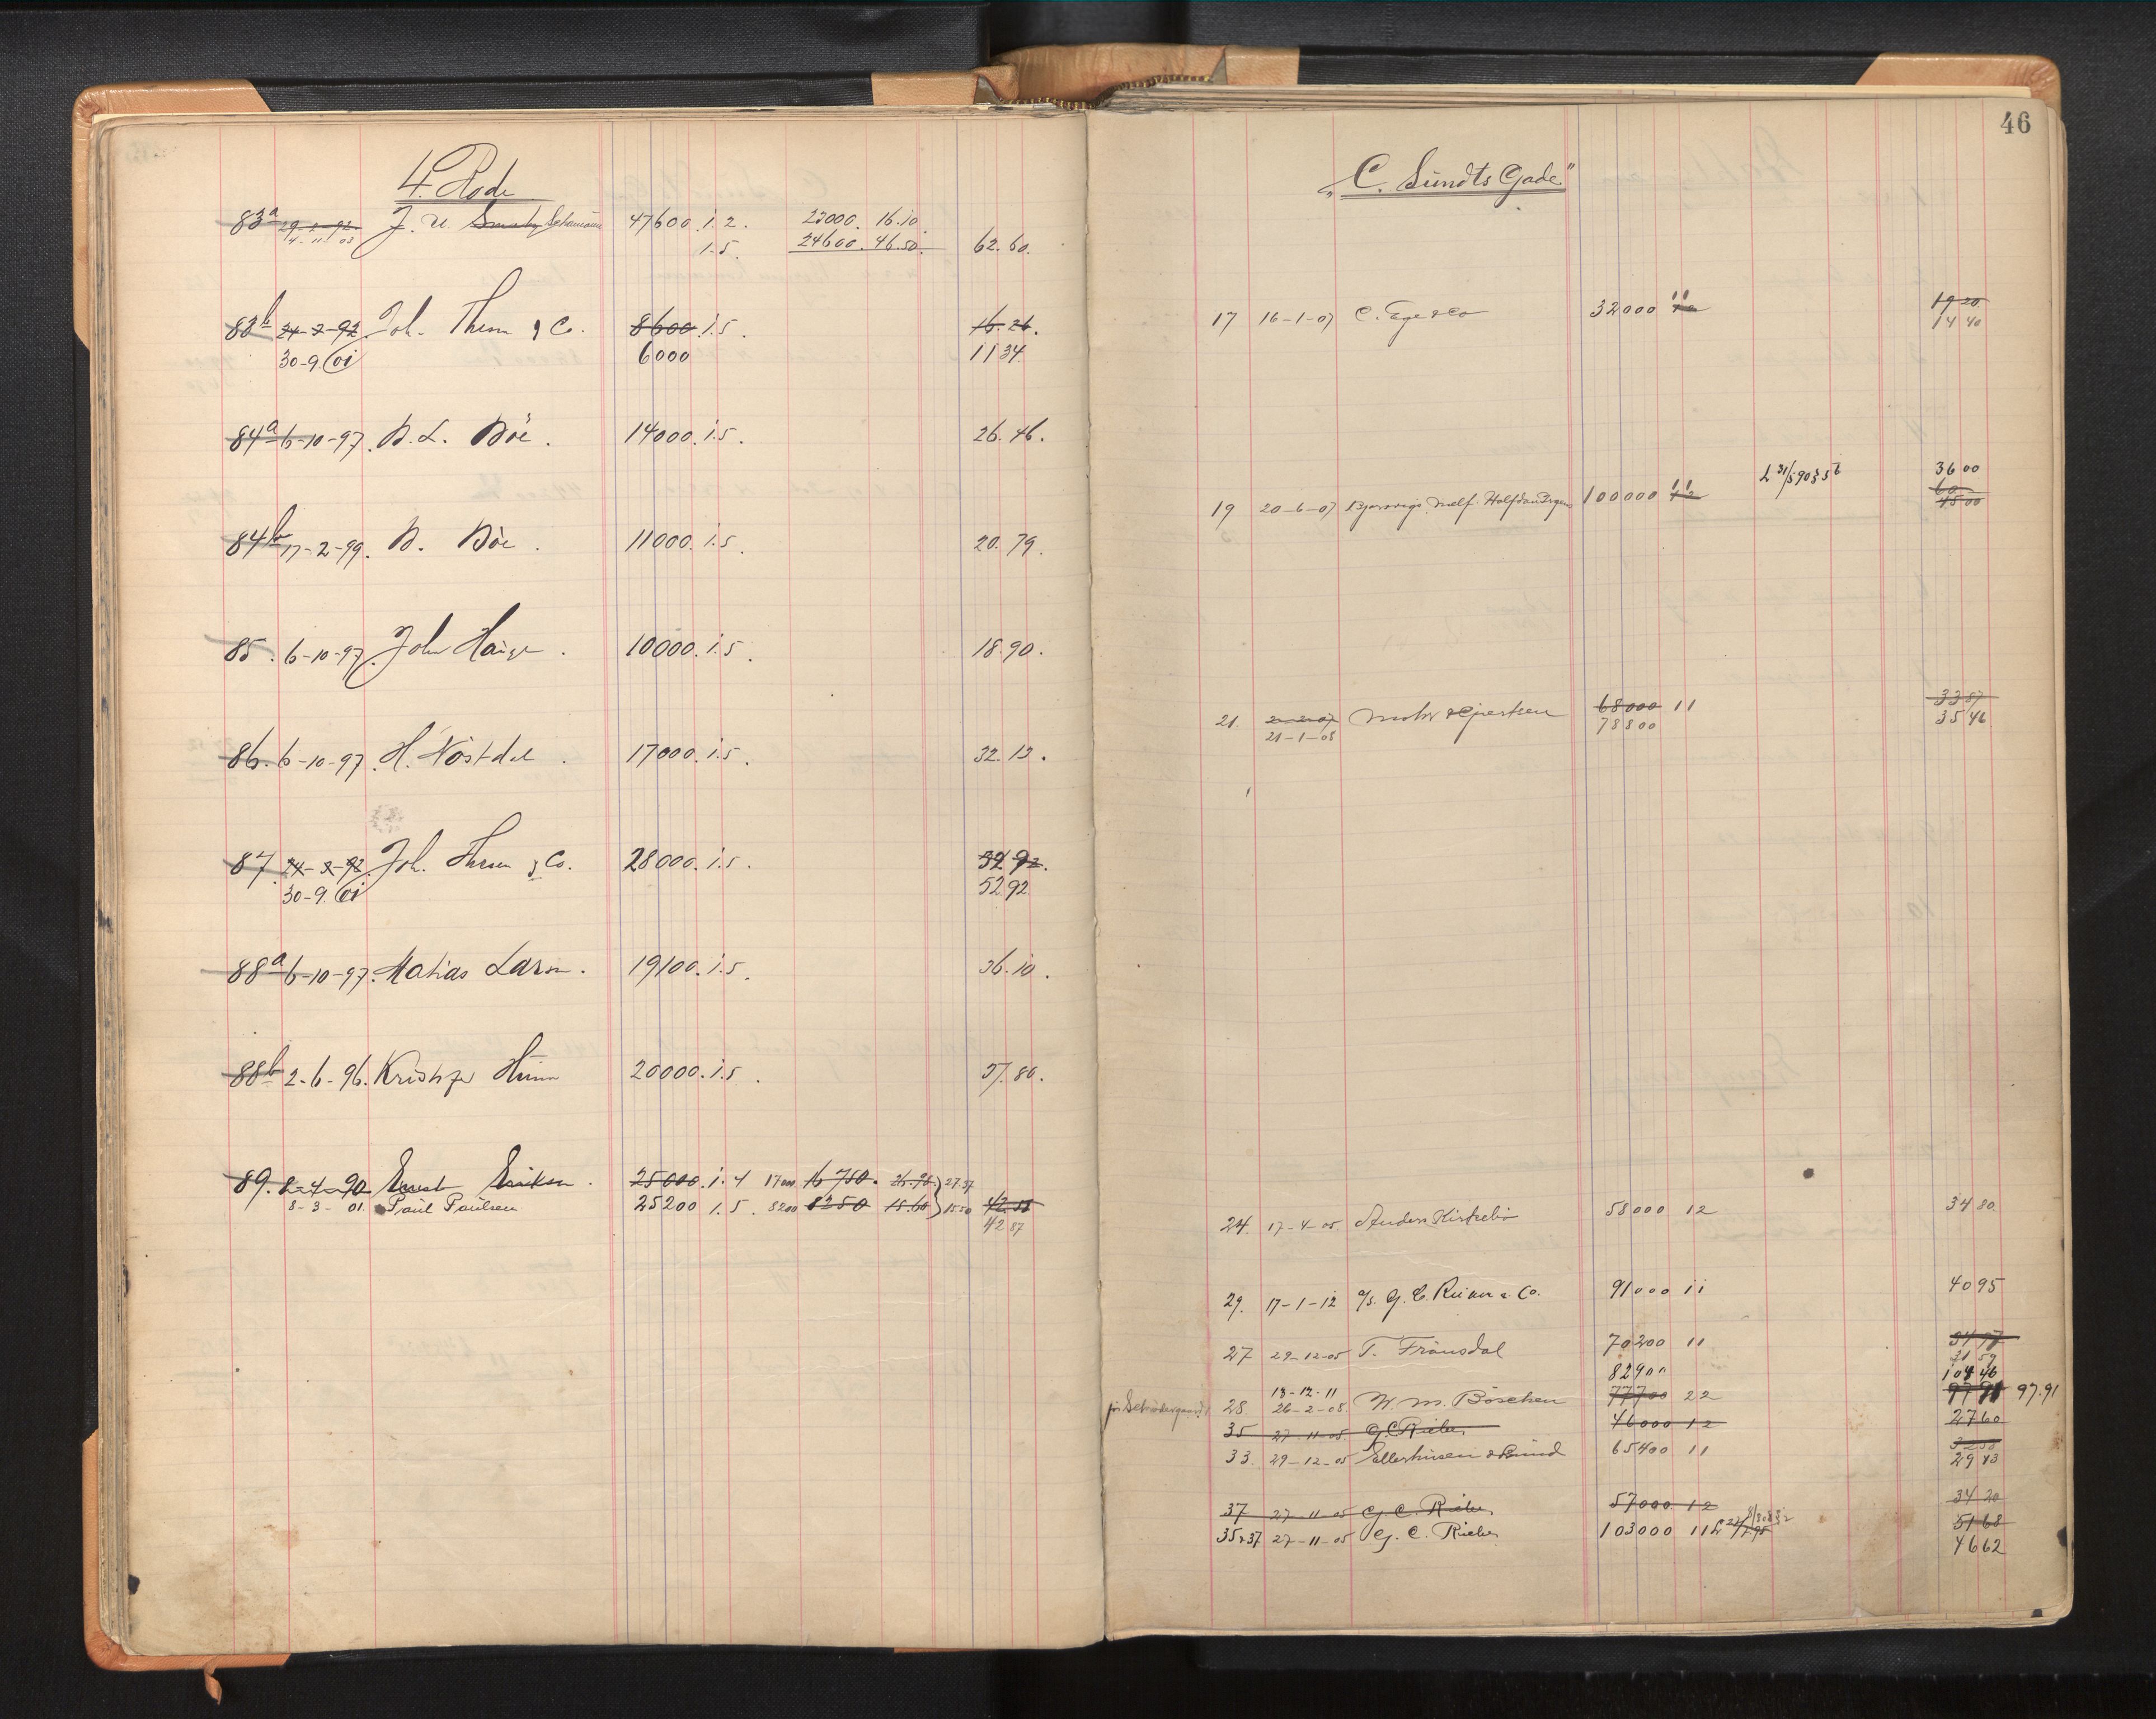 4. Rode
83a 29-2-92 J. U. Schumann 47600. 1.2. 23000. 16.10
4-11-03 1.5. 24600. 46.50. 62.60.
83b 24-2-92 Joh. Thesen & Co. 8600. 1.5. 16.26.
30-9.01 6000 11 34
84a 6-10-97. B. L. Böe. 14000. 1.5. 26.46.
84b 17-2-99. B. Böe. 11000. 1.5. 20.79.
85. 6-10-97. John Hauge. 10000. 1.5. 18.90.
86. 6-10-97. H. Nöstdal. 17000. 1.5. 32.13.
87. 24-2-92. Joh. Thesen & Co. 28000. 1.5. 39 92.
30-9.01 52 92
88a 6-10-97. Mathias Larsen. 19100. 1.5. 36.10.
88b 2-6-96. 20000. 1.5. 37.80.
89. 2-4-90 Eriksen. 25000. 1.4 17000 16750. 27.37
8-3-01. Paul Paulsen 25200 1.5. 8200 8250 15.60 15.50
42 87
46
"C. Sundts Gade"
17 16-1-07 C. Ege & Co 32000 11 12 19 20
14 40
L 31/5-90
36 00
19 20-6-07 100000 11 12 60
45 00
21. 68000 11 33 87
21-1-08 78800 35 46
24. 17-4-05. Anders 58000 12 34 80
29. 17-1-12 a/s. G. C. Rieber & Co. 91000 11 40 95
27 29-12-05 T. Frånsdal 70200 11
31 59
82900 104 46
13-12-11
28 26-2-08. W. M. Böschen 77700 22 97 91 97.91
35 27-11-05. G. C. Rieber 46000 12 27 60
33. 29-12-05 Ellerhusen & Lund 65400 11
29 43
37 27-11-05 G. C. Rieber 57000 12 34 20
51 68
35&37 27-11-05 G. C. Rieber 103000 11
46 62